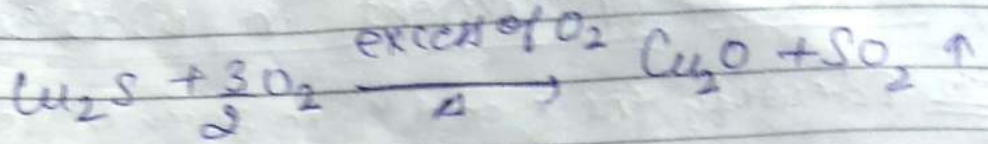 Cu₂S + 3/2 O₂ excess of O₂ ⟶ Δ Cu₂O + SO₂ ↑